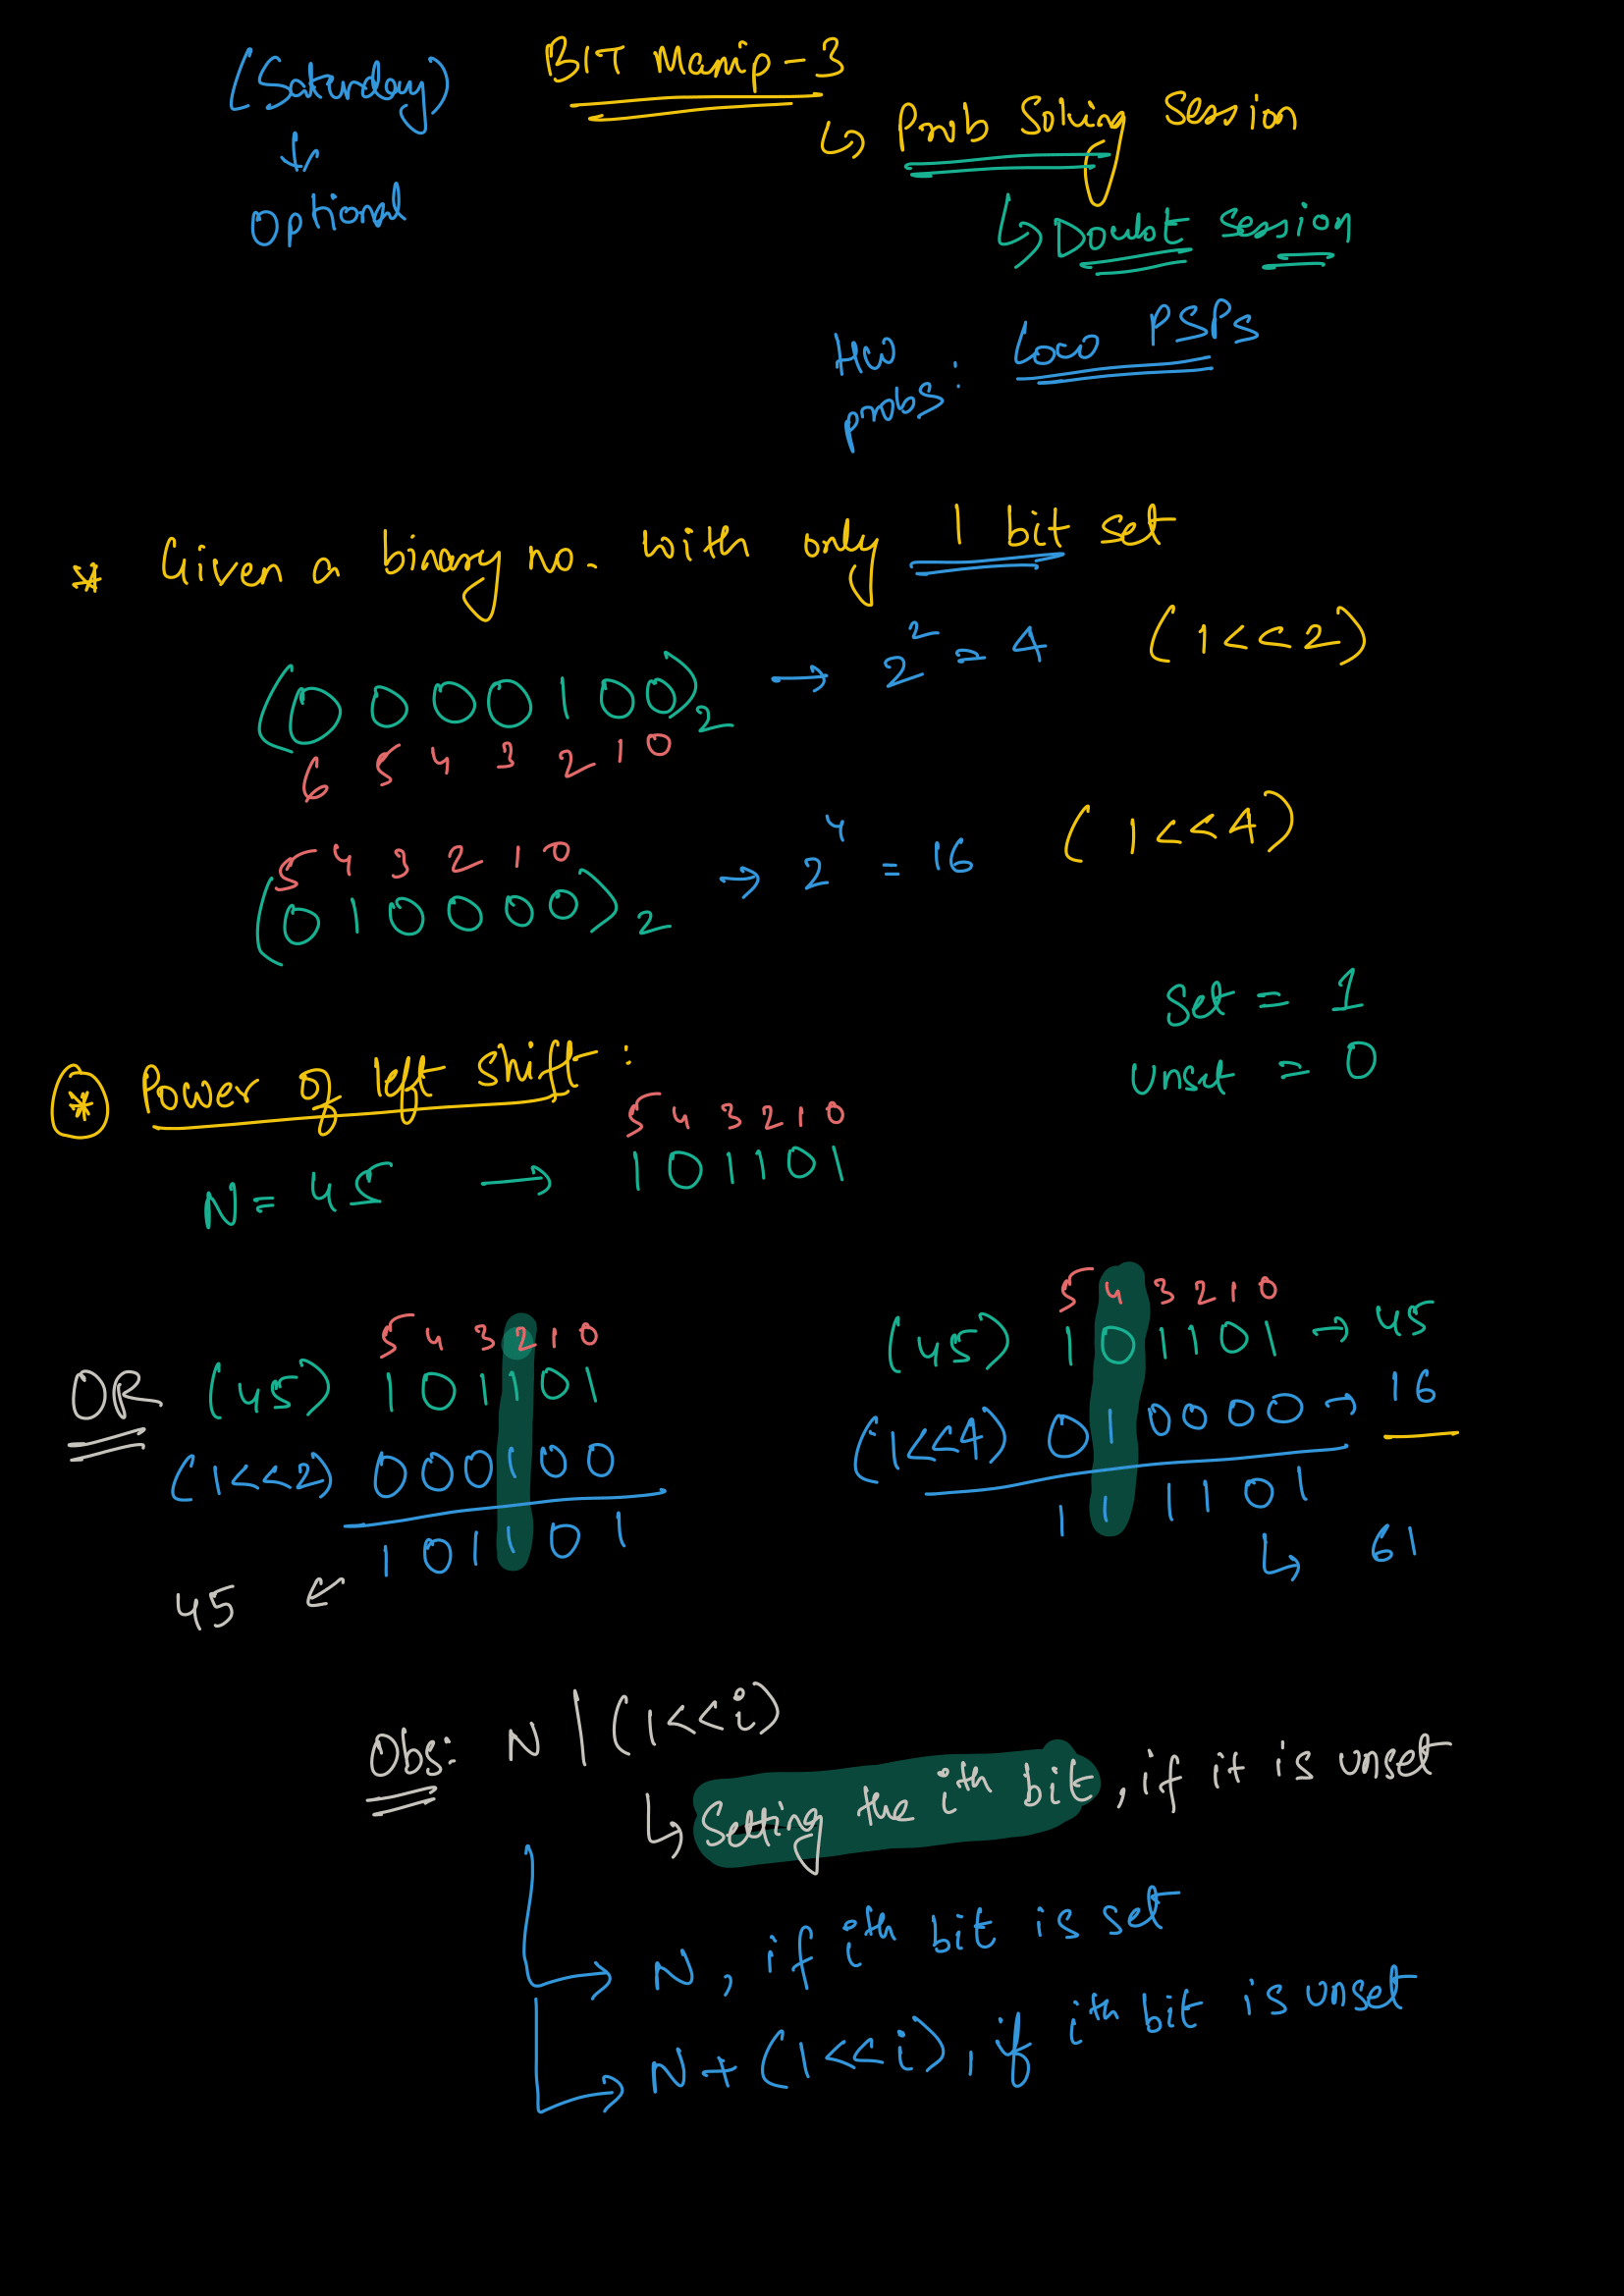 (Saturday) BIT Manip-3
↳ Prob Solving Session
↓
Optional
↳ Doubt Session
HW probs: Loco PSPs
* Given a binary no. with only 1 bit set
(0 0 0 0 1 0 0)₂ → 2² = 4 (1<<2)
6 5 4 3 2 1 0
5 4 3 2 1 0
(0 1 0 0 0 0)₂ → 2⁴ = 16 (1<<4)
Set = 1
Unset = 0
* Power of left shift:
5 4 3 2 1 0
N = 45 → 1 0 1 1 0 1
5 4 3 2 1 0
OR (45) 1 0 1 1 0 1
(1<<2) 0 0 0 1 0 0
1 0 1 1 0 1
45 ↙
5 4 3 2 1 0
(45) 1 0 1 1 0 1 → 45
(1<<4) 0 1 0 0 0 0 → 16
1 1 1 1 0 1
↳ 61
Obs: N | (1<<i)
↳ Setting the iᵗʰ bit, if it is unset
→ N, if iᵗʰ bit is set
→ N + (1<<i), if iᵗʰ bit is unset